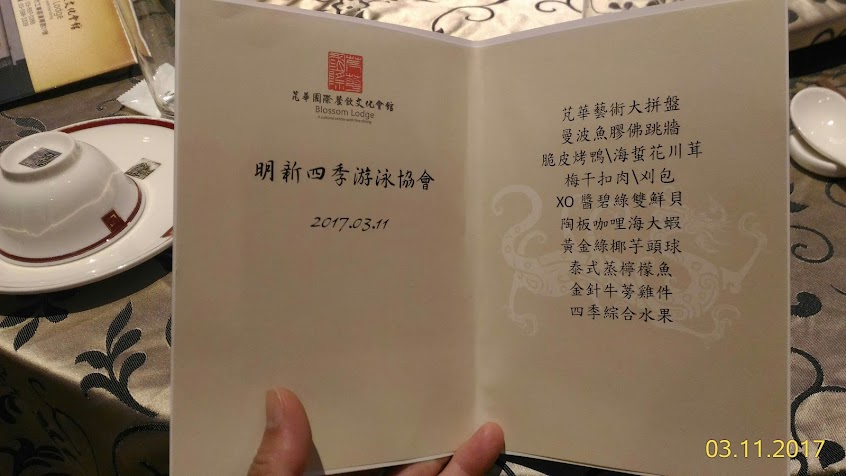 芃華國際餐飲文化會館
Blossom Lodge
明新四季游泳協會
2017.03.11
芃華藝術大拼盤
曼波魚膠佛跳牆
脆皮烤鴨\海蜇花川茸
梅干扣肉\刈包
XO 醬碧綠雙鮮貝
陶板咖哩海大蝦
黃金綠椰芋頭球
泰式蒸檸檬魚
金針牛蒡雞件
四季綜合水果
03.11.2017